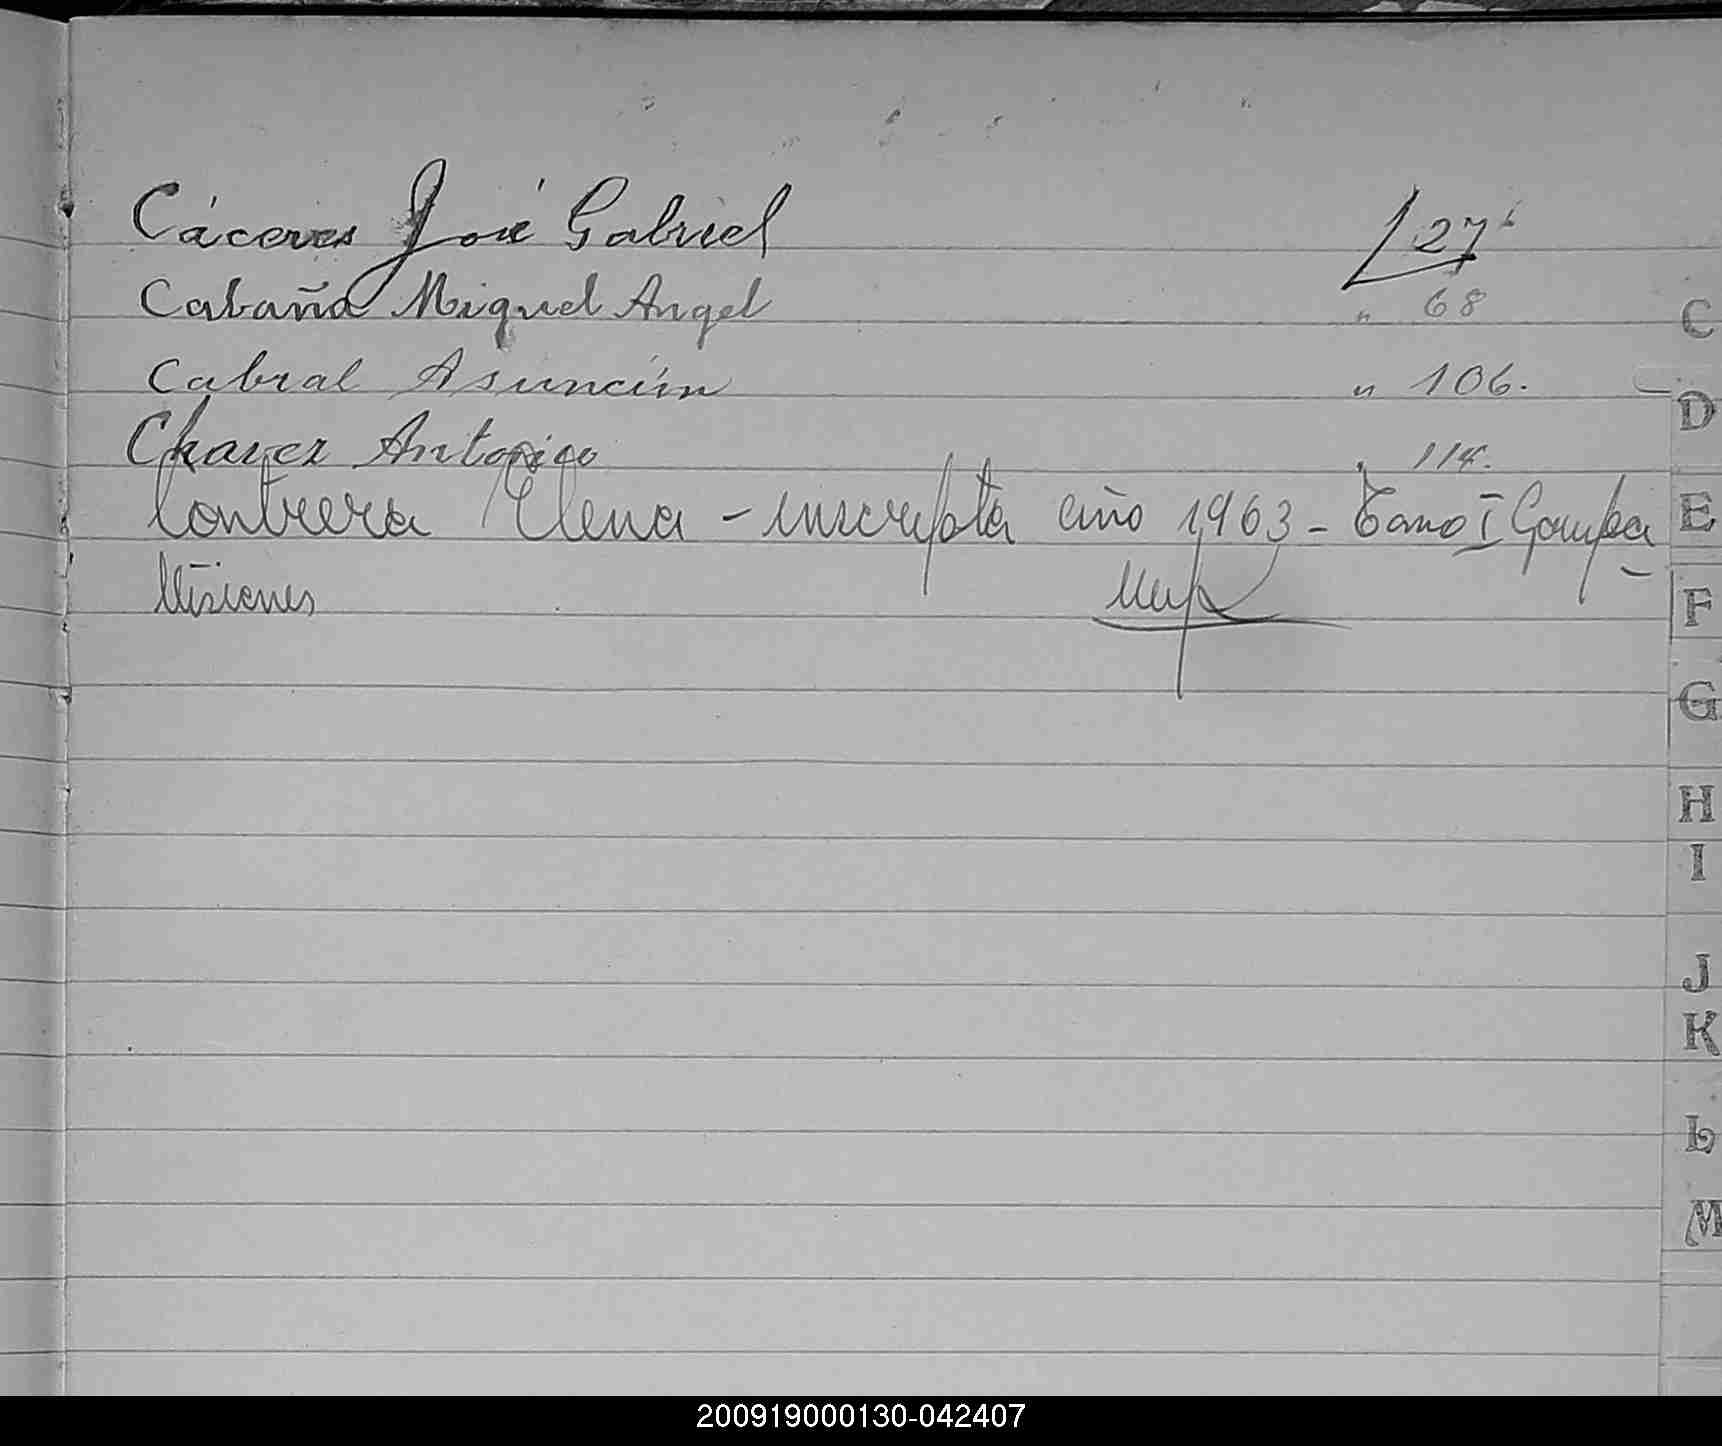 Cáceres José Gabriel 27
Cabaña Miguel Angel " 68
Cabral Asunción " 106.
Chavez Antonio " 114.
Contrera Elena - inscripta año 1963 - Tomo I
Misiones
C
D
E
F
G
H
I
J
K
L
M
200919000130-042407